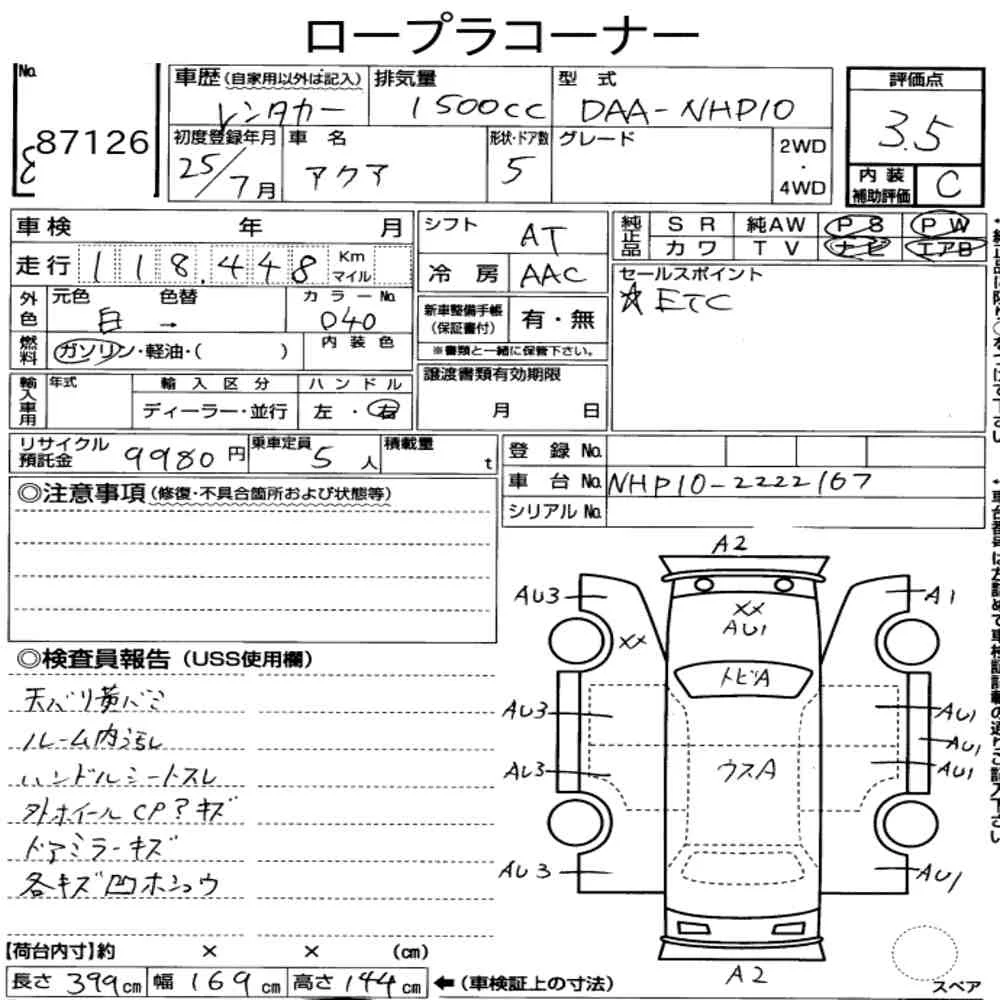 ロープラコーナー
No. 87126
車歴(自家用以外は記入) レンタカー
排気量 1500cc
型式 DAA-NHP10
評価点 3.5
初度登録年月 25/7月
車名 アクア
形状・ドア数 5
グレード
2WD・4WD
内装補助評価 C
車検 年 月
走行 118.448 Km マイル
外色 元色 白 → 色替
カラーNo. 040
燃料 ガソリン・軽油・( )
内装色
輸入車用 年式
輸入区分 ディーラー・並行
ハンドル 左・右
シフト AT
冷房 AAC
新車整備手帳(保証書付) 有・無
※書類と一緒に保管下さい。
譲渡書類有効期限 月 日
純正品 SR 純AW PS PW
カワ TV ナビ エアB
セールスポイント
☆ETC
リサイクル預託金 9980円
乗車定員 5人
積載量 t
登録No.
車台No. NHP10-2222167
シリアルNo.
◎注意事項(修復・不具合箇所および状態等)
◎検査員報告(USS使用欄)
天バリ黄バミ
ルーム内汚レ
ハンドルシートスレ
外ホイールCP?キズ
ドアミラーキズ
各キズ凹ホシュウ
A2
AU3
A1
XX
AU1
XX
トビA
AU3
AU1
AU1
AU3
AU1
ウスA
AU3
AU1
A2
スペア
【荷台内寸】約 × × (cm)
長さ 399cm 幅 169cm 高さ 144cm ←(車検証上の寸法)